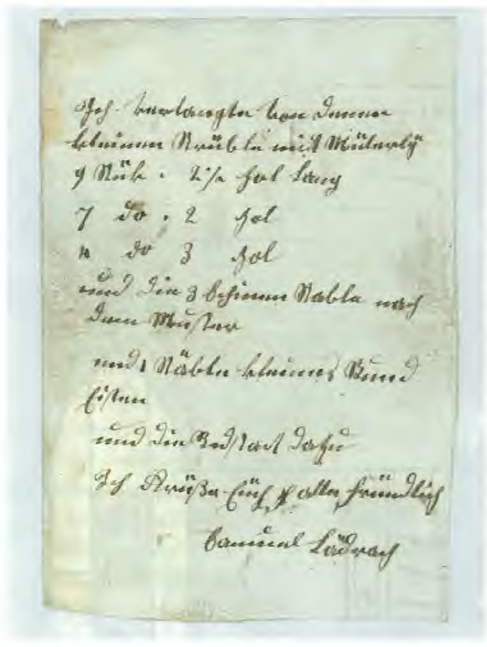 Ich verlangte von denen
kleinen Strüble mit Müterly
9 Stük . 2 1/2 Zol lang
7 do . 2 Zol
4 do 3 Zol
und die 3 Schinen Stäble nach
dem Muster
und 1 Stäble kleines Rund
Eisen
und die dafür
Ich Grüße Eüch alle freündlich
Samuel Lädrach